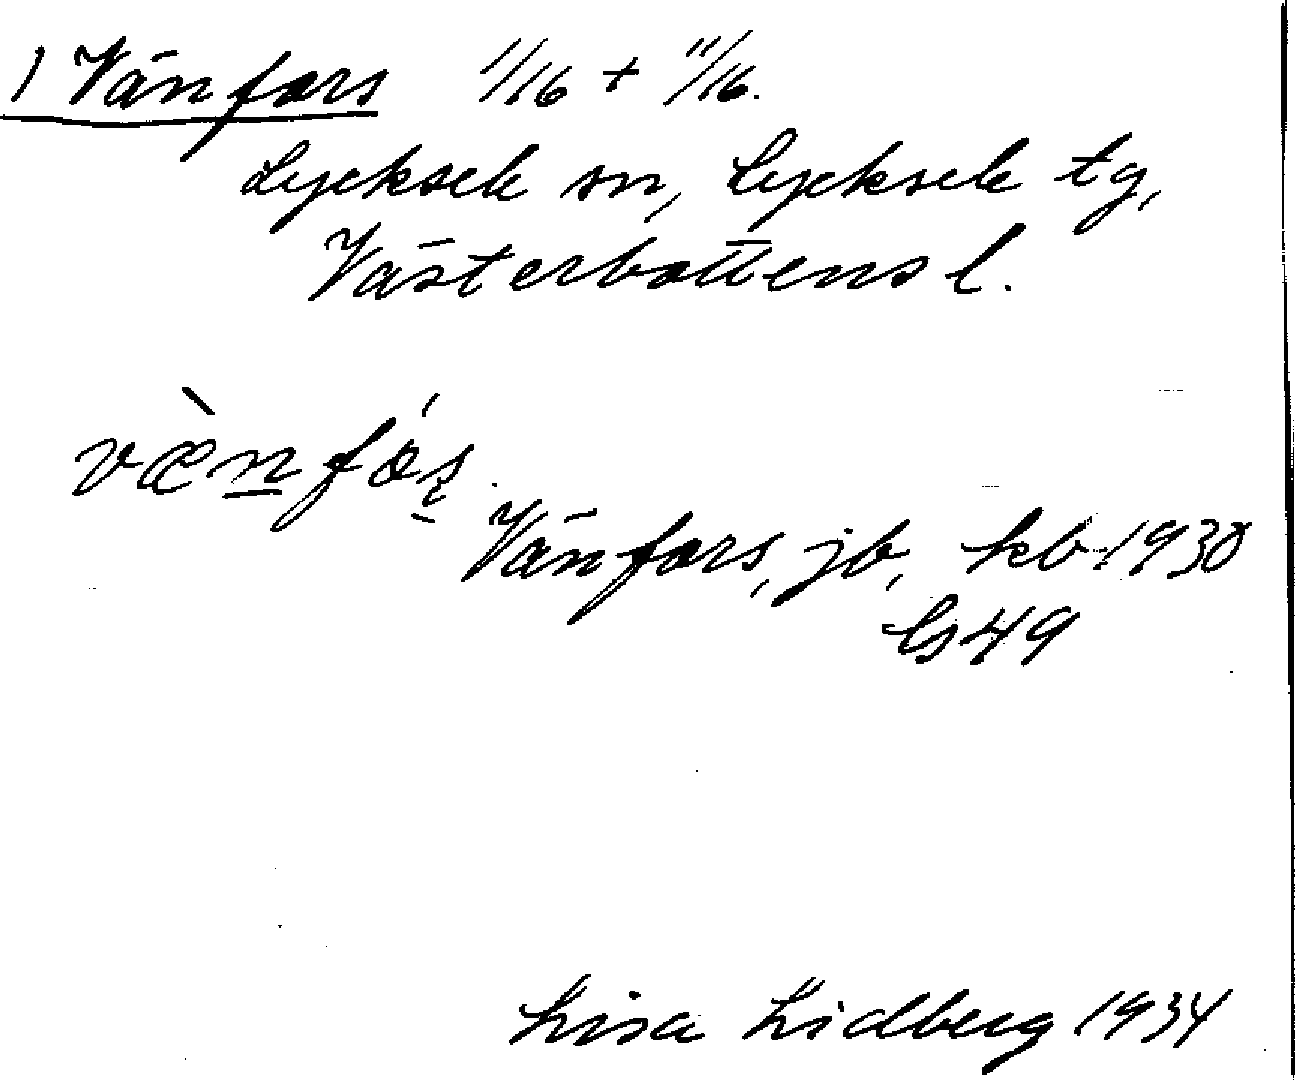 1 Vänfors 1/16 + 11/16.
Lycksele sn, Lycksele tg,
Västerbottens l.
vænfós.
Vänfors, jb, kb 1930
Gs 49
Lisa Lidberg 1934